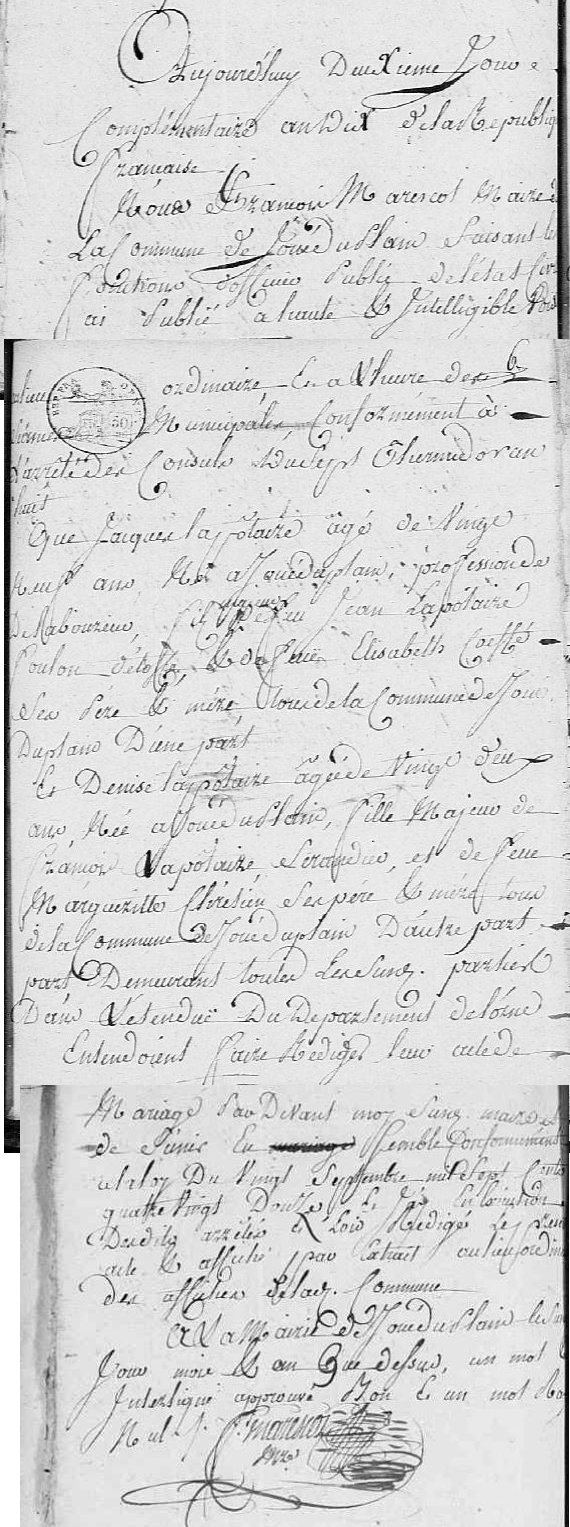 Aujourd'huy Deuxieme Jour
Complémentaire an Dix de la Republiq
française
Nous François Marescot Maire d
La Commune de Joué du Plain faisant les
fonctions d'officier Public de l'état Civi
ai Publié a haute & Intelligible Voi
ordinaire En a L'heure de 6
Municipales Conformément à
L'arrêté des Consuls Du Sept Thermidor an
huit
Que Jacques Lapôtaire âgé de Vingt
Neuf ans Né a Joué du plain, profession de
De Laboureur, fils de feu Jean Lapôtaire
foulon d'étoffe, & de feue Elisabeth Coeffé
Ses Père & mére tous de la Commune de Joué
Du plain D'une part
Et Denise Lapôtaire âgée de Vingt deux
ans Née a Joué du Plain, fille Majeur de
François Lapôtaire Serandier, et de feue
Margueritte Chrétien Ses pere & mére tous
de la Commune de Joué du plain D'autre part
part Demeurant toutes Les susd. parties
Dans L'étenduë Du Departement de l'orne
Entendoient faire Rediger Leur acte de
Mariage Par Devant moy Susd. maire &
de S'unir En mariage semble Conformément
a la loy Du Vingt Septembre mil Sept Cents
quatre Vingt Douze Et J'ai En Exécution
Desdits arrêtés & Lois Redigé Le présen
acte & affiché par Extrait au lieu ordin
des affiches de lad. Commune
A La Mairie de Joué du plain les
Jour mois & an Que dessus, un mot
Interligné approuvé Bon & un mot Ray
Nul
f. Marescot
Mre